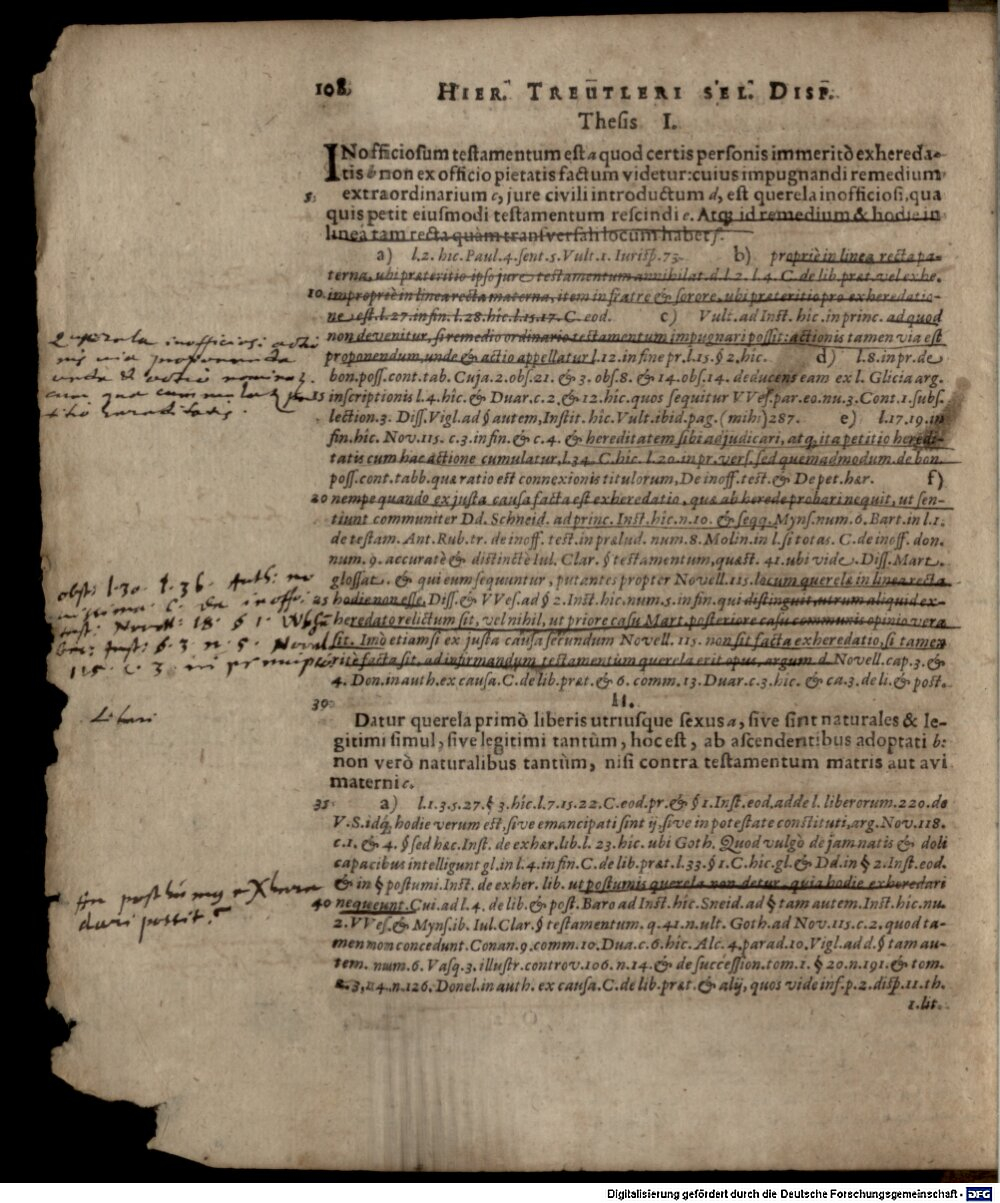 108. HIER. TREUTLERI SEL. DISP.
Thesis I.
INofficiosum testamentum est a quod certis personis immeritò exhereda-
tis b non ex officio pietatis factum videtur: cuius impugnandi remedium
5. extraordinarium c, jure civili introductum d, est querela inofficiosi, qua
quis petit eiusmodi testamentum rescindi e. Atq; id remedium & hodie in
linea tam recta quàm transversali locum habet f.
a) l.2. hic. Paul. 4. sent. 5. Vult. 1. Iurisp. 73. b) propriè in linea recta pa-
terna, ubi præteritio ipso jure testamentum annihilat. d. l.2. l.4. C. de lib. præt. vel exhe.
10. impropriè in linea recta materna, item in fratre & sorore, ubi præteritio pro exheredatio-
ne est. l.27. in fin. l.28. hic. l.15.17. C. eod. c) Vult. ad Inst. hic. in princ. ad quod
non devenitur, si remedio ordinario testamentum impugnari possit: actionis tamen via est
proponendum, unde & actio appellatur l.12. in fine pr. l.15. § 2. hic. d) l.8. in pr. de
bon. poss. cont. tab. Cuja. 2. obs. 21. & 3. obs. 8. & 14. obs. 14. deducens eam ex l. Glicia arg.
15 inscriptionis l.4. hic & Duar. c.2. & 12. hic. quos sequitur VVes. par. eo. nu. 3. Cont. 1. subs.
lection. 3. Diss. Vigl. ad § autem, Instit. hic. Vult. ibid. pag. (mihi) 287. e) l.17.19. in
fin. hic. Nov. 115. c.3. in fin. & c.4. & hereditatem sibi adjudicari, atq, ita petitio heredi-
tatis cum hac actione cumulatur, l.34. C. hic. l.20. in pr. vers. sed quemadmodum. de bon.
poss. cont. tabb. quæ ratio est connexionis titulorum, De inoff. test. & De pet. hær. f)
20 nempe quando ex justa causa facta est exheredatio, quæ ab herede probari nequit, ut sen-
tiunt communiter Dd. Schneid. ad princ. Inst. hic. n. 10. & seqq. Myns. num. 6. Bart. in l.1.
de testam. Ant. Rub. tr. de inoff. test. in prælud. num. 8. Molin. in l. si totas. C. de inoff. don.
num. 9. accuratè & distinctè Iul. Clar. § testamentum, quæst. 41. ubi vide. Diss. Mart.
glossat. & qui eum sequuntur, putantes propter Novell. 115. locum querelæ in linea recta
25 hodie non esse. Diss. & VVes. ad § 2. Inst. hic. num. 5. in fin. qui distinguit, utrum aliquid ex-
heredato relictum sit, vel nihil, ut priore casu Mart. posteriore casu communis opinio vera
sit. Imò etiamsi ex justa causa secundum Novell. 115. non sit facta exheredatio, si tamen
ritè facta sit, ad infirmandum testamentum querela erit opus, argum. d. Novell. cap. 3. &
4. Don. in auth. ex causa. C. de lib. præt. & 6. comm. 13. Duar. c.3. hic. & ca. 3. de li. & post.
30 II.
Datur querela primò liberis utriusque sexus a, sive sint naturales & le-
gitimi simul, sive legitimi tantùm, hoc est, ab ascendentibus adoptati b:
non verò naturalibus tantùm, nisi contra testamentum matris aut avi
materni c.
35 a) l.1.3.5.27. § 3. hic. l.7.15.22. C. eod. pr. & § 1. Inst. eod. adde l. liberorum. 220. de
V.S. idq, hodie verum est, sive emancipati sint ij, sive in potestate constituti, arg. Nov. 118.
c.1. & 4. § sed hæc. Inst. de exhær. lib. l. 23. hic. ubi Goth. Quod vulgò de jam natis & doli
capacibus intelligunt gl. in l.4. in fin. C. de lib. præt. l.33. § 1. C. hic. gl. & Dd. in § 2. Inst. eod.
& in § postumi. Inst. de exher. lib. ut postumis querela non detur, quia hodie exheredari
40 nequeunt. Cui. ad l.4. de lib. & post. Baro ad Inst. hic. Sneid. ad § tam autem. Inst. hic. nu.
2. VVes. & Myns. ib. Iul. Clar. § testamentum. q. 41. n. ult. Goth. ad Nov. 115. c.2. quod ta-
men non concedunt. Conan. 9. comm. 10. Dua. c.6. hic. Alc. 4. parad. 10. Vigl. ad d. § tam au-
tem. num. 6. Vasq. 3. illustr. controv. 106. n. 14. & de succession. tom. 1. § 20. n. 191. & tom.
n. 126. Donel. in auth. ex causa. C. de lib. præt. & alij, quos vide inf. p. 2. disp. 11. th.
1. lit.
Querela inofficiosi
unde & actio
obst. l. 30. l. 36. Auth.
115. c. 3. in princip.
Liberi
An posthumus exhere
dari possit?
Digitalisierung gefördert durch die Deutsche Forschungsgemeinschaft - DFG